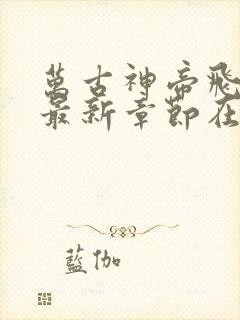 萬古神帝飛
最新章節在
藍伽